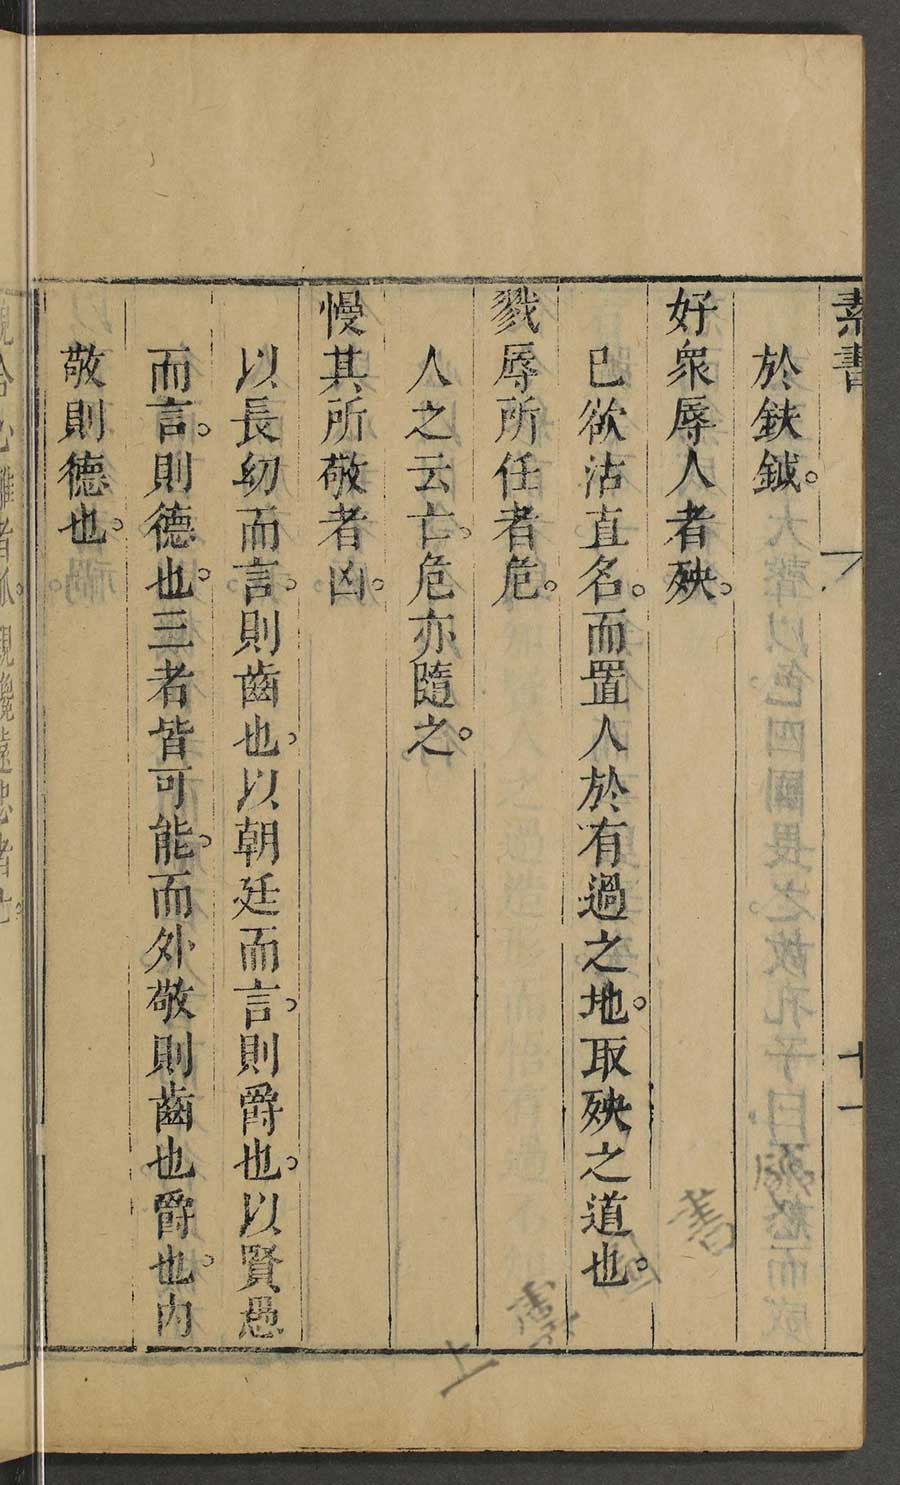 素書
十一
於鈇鉞。
好衆辱人者殃。
已欲沽直名。而置人於有過之地。取殃之道也。
戮辱所任者危。
人之云亡。危亦隨之。
慢其所敬者凶。
以長幼而言。則齒也。以朝廷而言。則爵也。以賢愚
而言。則德也。三者皆可能。而外敬則齒也爵也。內
敬則德也。